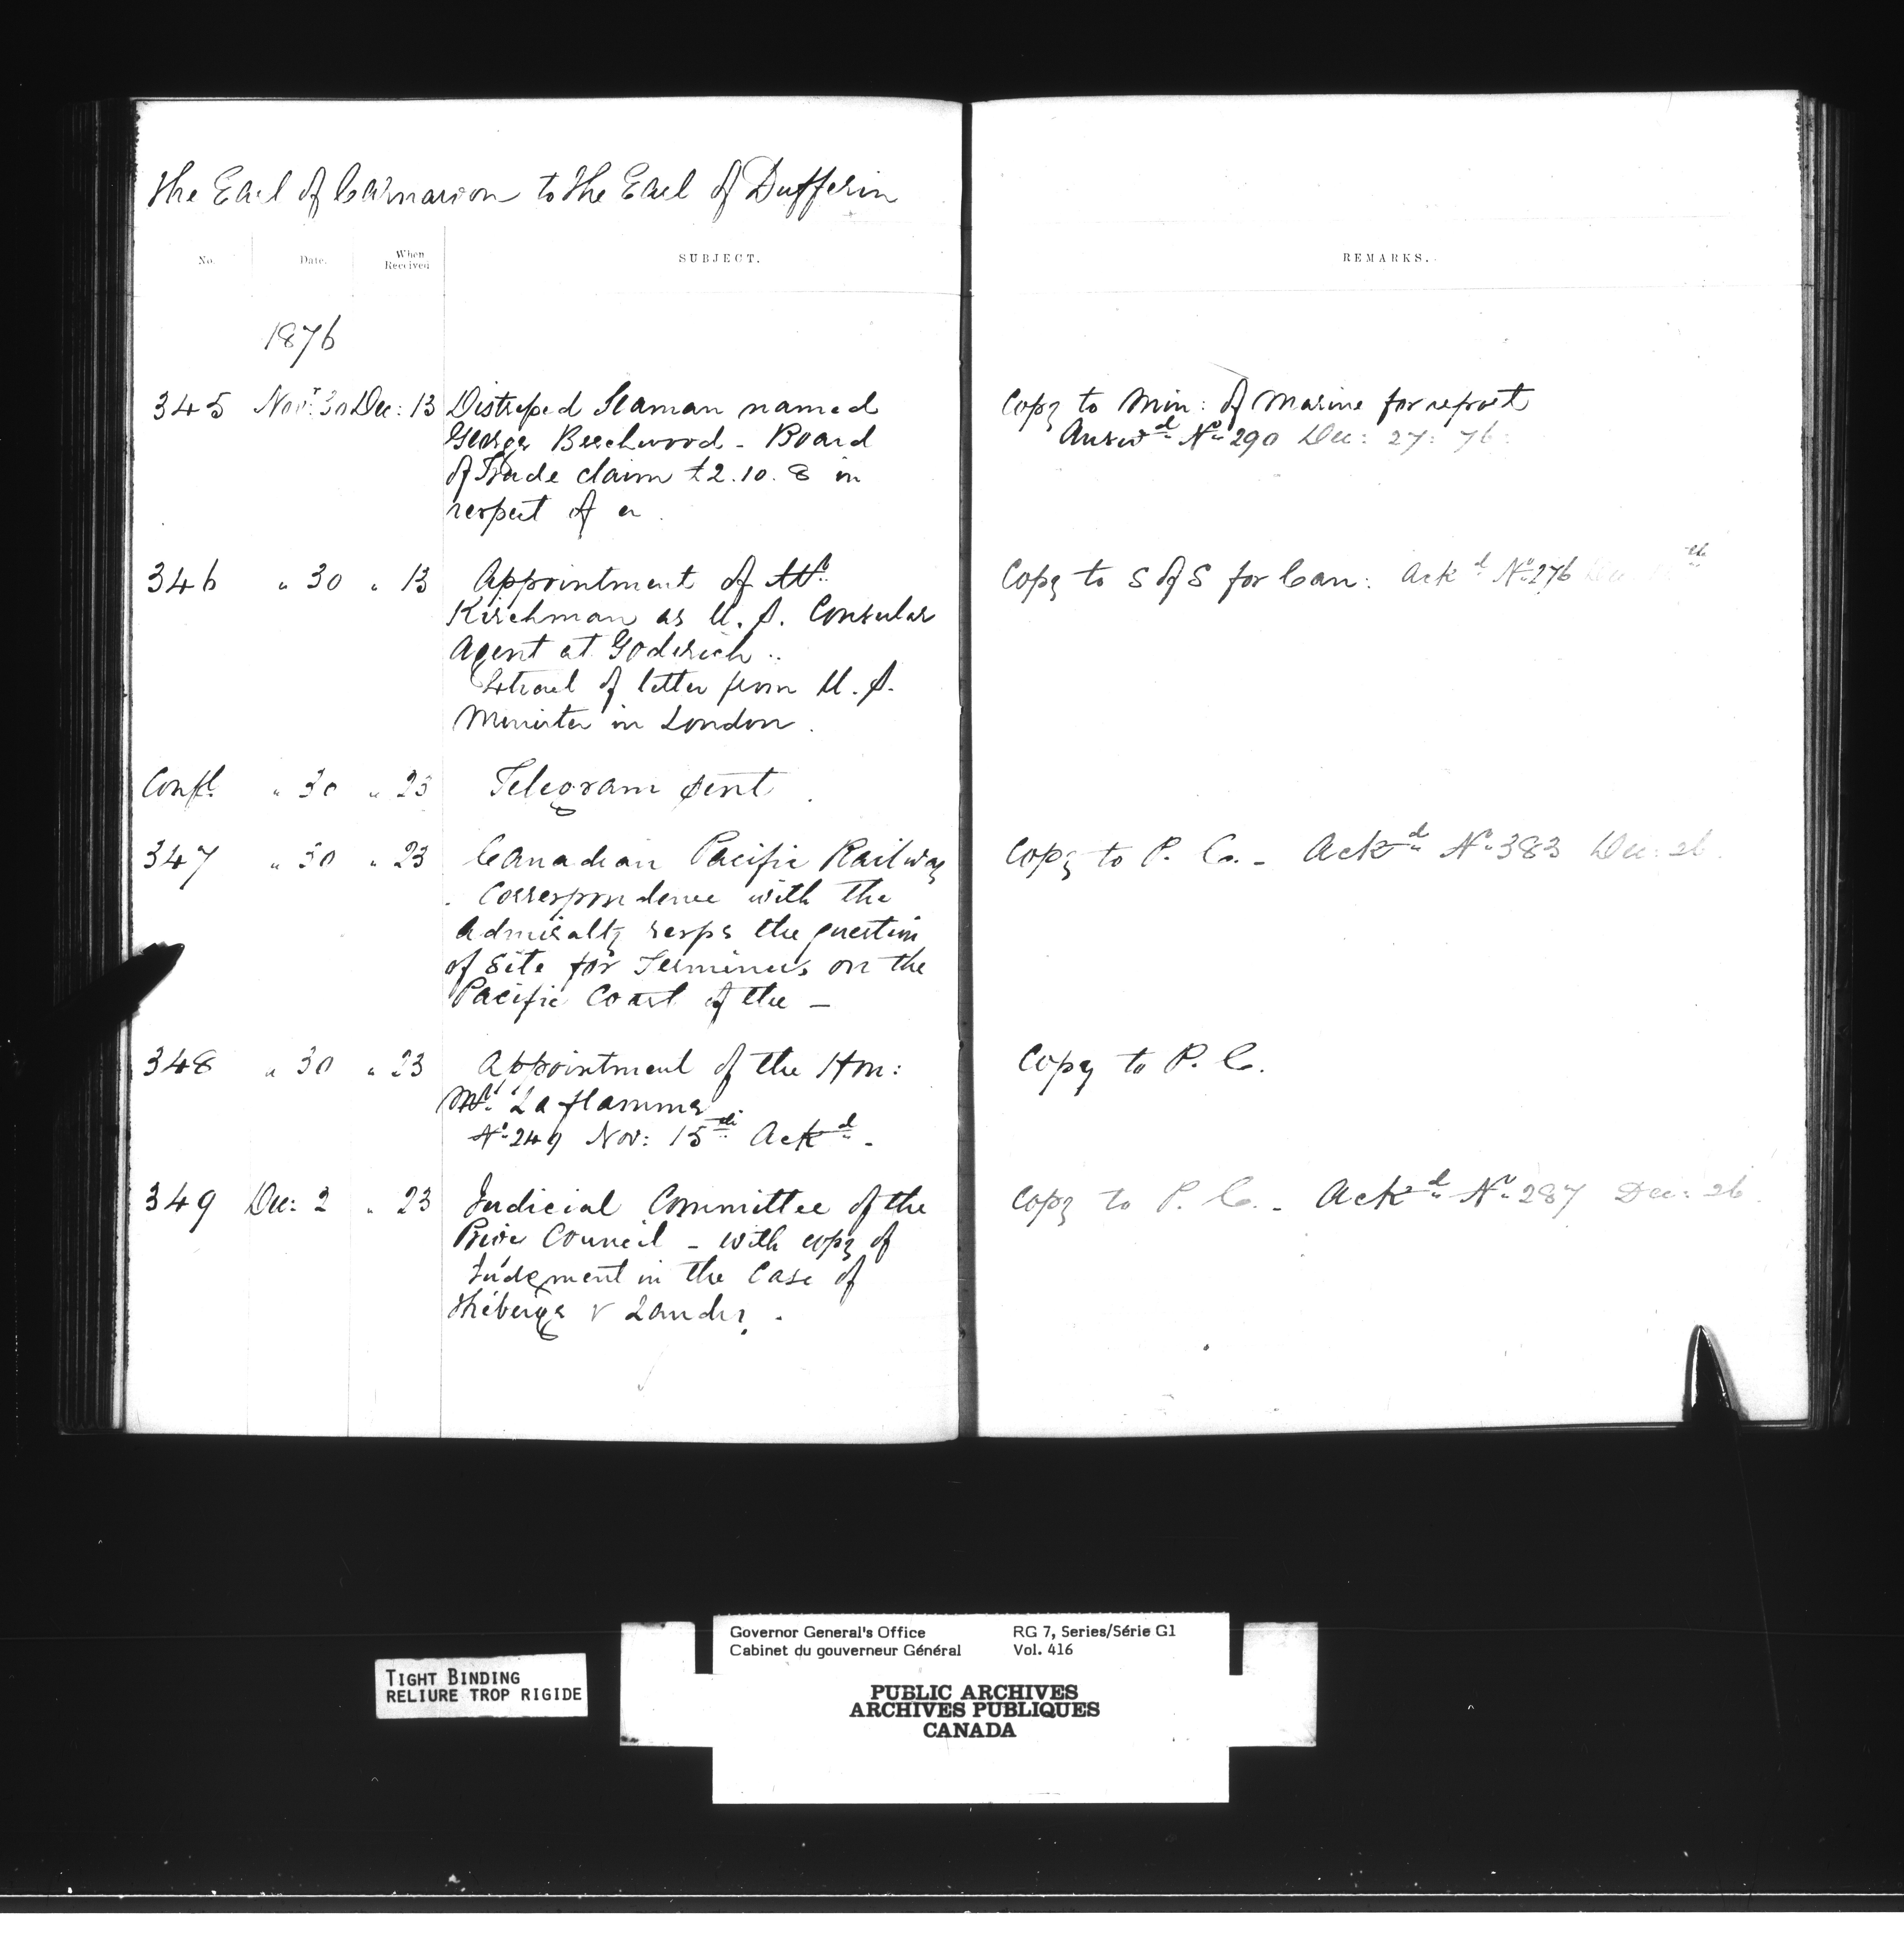 The Earl of Carnarvon to the Earl of Dufferin
No. Date. When Received SUBJECT. REMARKS.
1876
345 Novr: 30 Dec: 13 Distressed Seaman named
George Beechwood - Board
of Trade claim £2.10.8 in
respect of a
Copy to Min: of Marine for report
Answd No 290 Dec: 27: 76:
346 " 30 " 13 Appointment of Mr
Kirchman as U.S. Consular
Agent at Goderich ..
Extract of letter from U.S.
Minister in London.
Copy to S of S for Can: Ackd No 276
Confl. " 30 " 23 Telegram sent.
347 " 30 " 23 Canadian Pacific Railway
. Correspondence with the
Admiralty resps the question
of Site for Terminus on the
Pacific Coast of the -
Copy to P. C. - Ackd No 383 Dec: 26.
348 " 30 " 23 Appointment of the Hon:
Mr Laflamme
No 249 Nov: 15th Ackd -
Copy to P. C.
349 Dec: 2 " 23 Judicial Committee of the
Privy Council - with copy of
Judgment in the Case of
Théberge v Landry.
Copy to P. C. - Ackd No 287 Dec: 26.
TIGHT BINDING
RELIURE TROP RIGIDE
Governor General's Office RG 7, Series/Série G1
Cabinet du gouverneur Général Vol. 416
PUBLIC ARCHIVES
ARCHIVES PUBLIQUES
CANADA